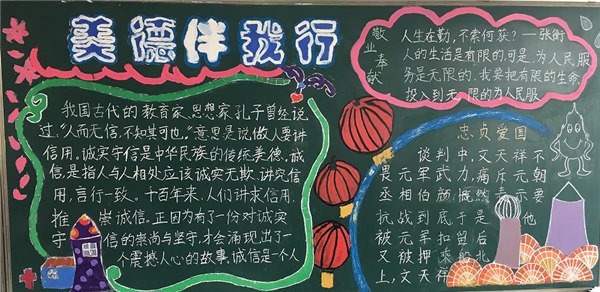 美德伴我行
我国古代的教育家、思想家孔子曾经说
过，"人而无信，不知其可也。"意思是说，做人要讲
信用。诚实守信是中华民族的传统美德。诚
信是指人与人相处应该诚实无欺，讲究信
用，言行一致。千百年来，人们讲求信用，
推崇诚信。正因为有了一份对诚实
守信的崇尚与坚守，才会涌现出了一
个个震撼人心的故事。诚信是一个人
敬业奉献
人生在勤，不索何获？——张衡
人的生活是有限的，可是，为人民服
务是无限的，我要把有限的生命，
投入到无限的为人民服
忠贞爱国
谈判中，文天祥不
畏元军武力，痛斥元朝
丞相伯颜，慨然表示要
抗战到底，于是，他
被元军扣留，后
又被押乘船北
上，文天祥